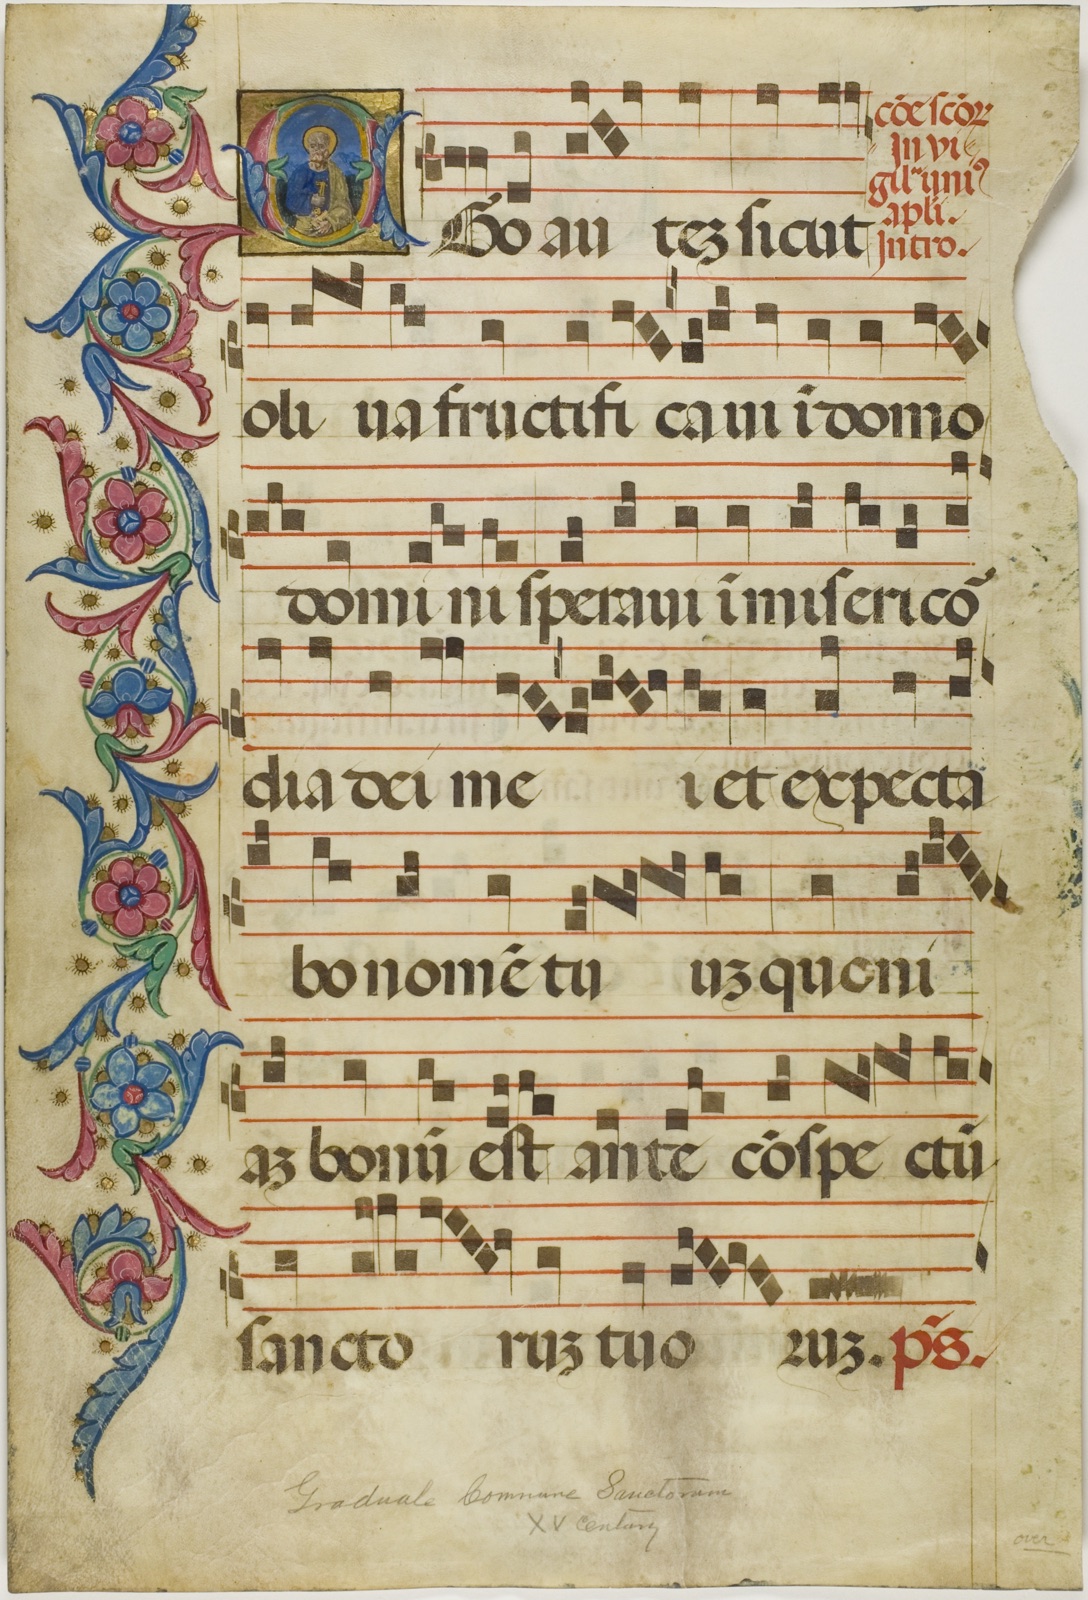 EGo au tez sicut
cōe scōꝝ
In vi
gil' uni'
apli.
Intro.
oli ua fructifi caui ī domo
domi ni speraui ī miseri cō
dia dei me i et expecta
bo nomē tu uz quoni
az bonū est ante cōspe ctū
sancto ruz tuo ꝝuz. p̄s.
Graduale Commune Sanctorum
XV Century
over